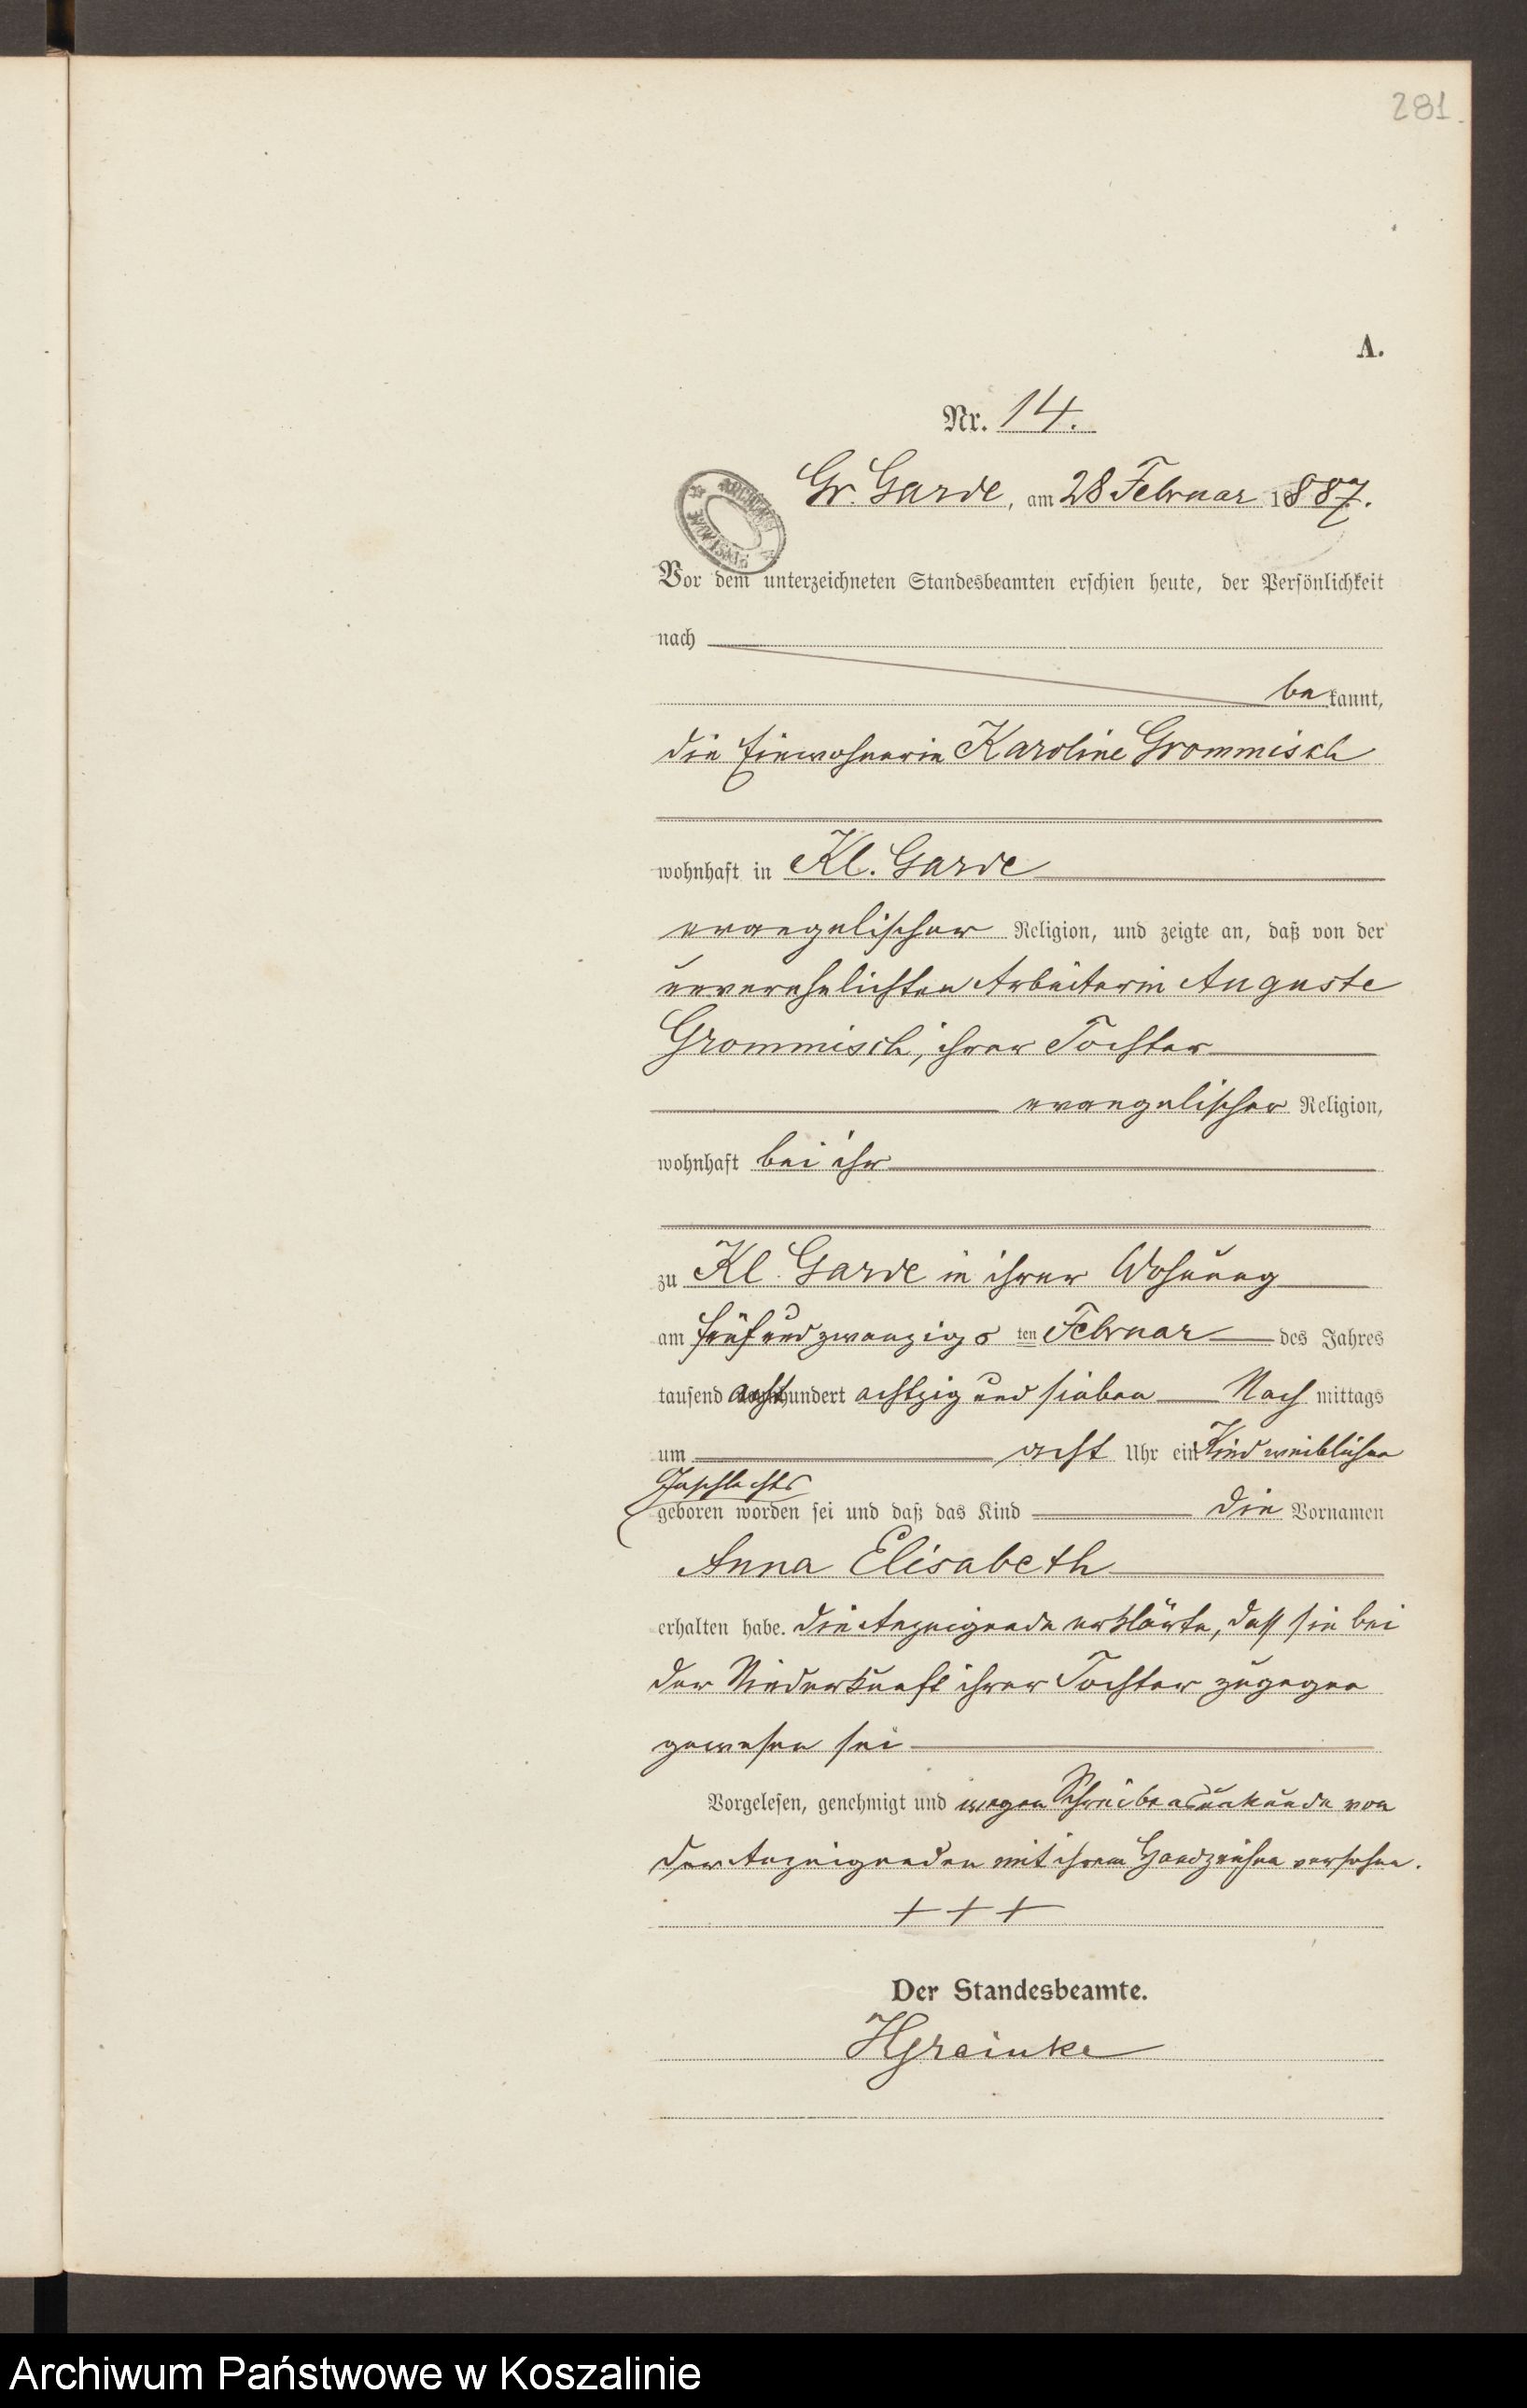 281.
A.
Nr. 14.
Gr. Garde, am 28 Februar 1887.
Vor dem unterzeichneten Standesbeamten erschien heute, der Persönlichkeit
nach
bekannt,
die Einwohnerin Karoline Grommisch
wohnhaft in Kl. Garde
evangelischer Religion, und zeigte an, daß von der
unverehelichten Arbeiterin Auguste
Grommisch, ihrer Tochter
evangelischer Religion,
wohnhaft bei ihr
zu Kl. Garde in ihrer Wohnung
am fünfundzwanzigsten Februar des Jahres
tausend achthundert achtzig und sieben Nachmittags
um acht Uhr ein Kind weiblichen
Geschlechts
geboren worden sei und daß das Kind die Vornamen
Anna Elisabeth
erhalten habe. Die Anzeigende erklärte, daß sie bei
der Niederkunft ihrer Tochter zugegen
gewesen sei
Vorgelesen, genehmigt und wegen Schreibensunkunde von
der Anzeigenden mit ihrem Handzeichen versehen.
+++
Der Standesbeamte.
Archiwum Państwowe w Koszalinie